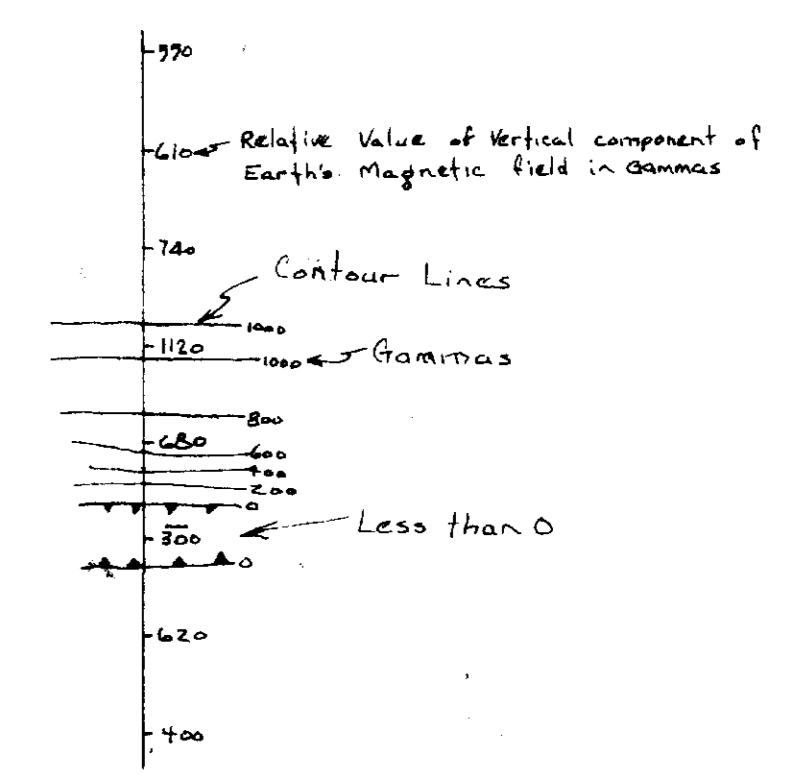 590
610 Relative Value of Vertical component of
Earth's Magnetic field in Gammas
740
Contour Lines
1000
1120
1000 Gammas
800
680
600
400
200
0
300 Less than 0
0
620
400